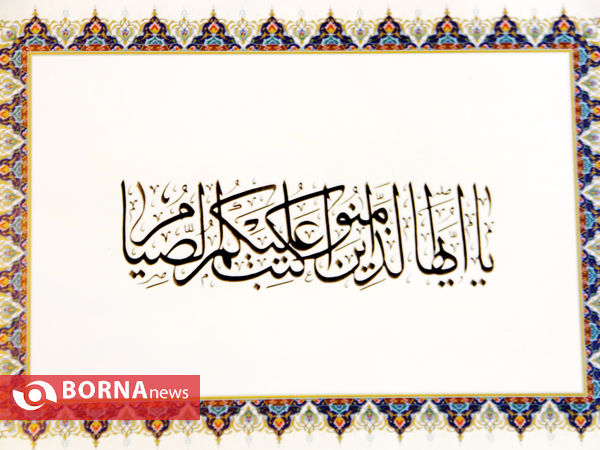 یا ایها الذین امنوا کتب علیکم الصیام
BORNAnews